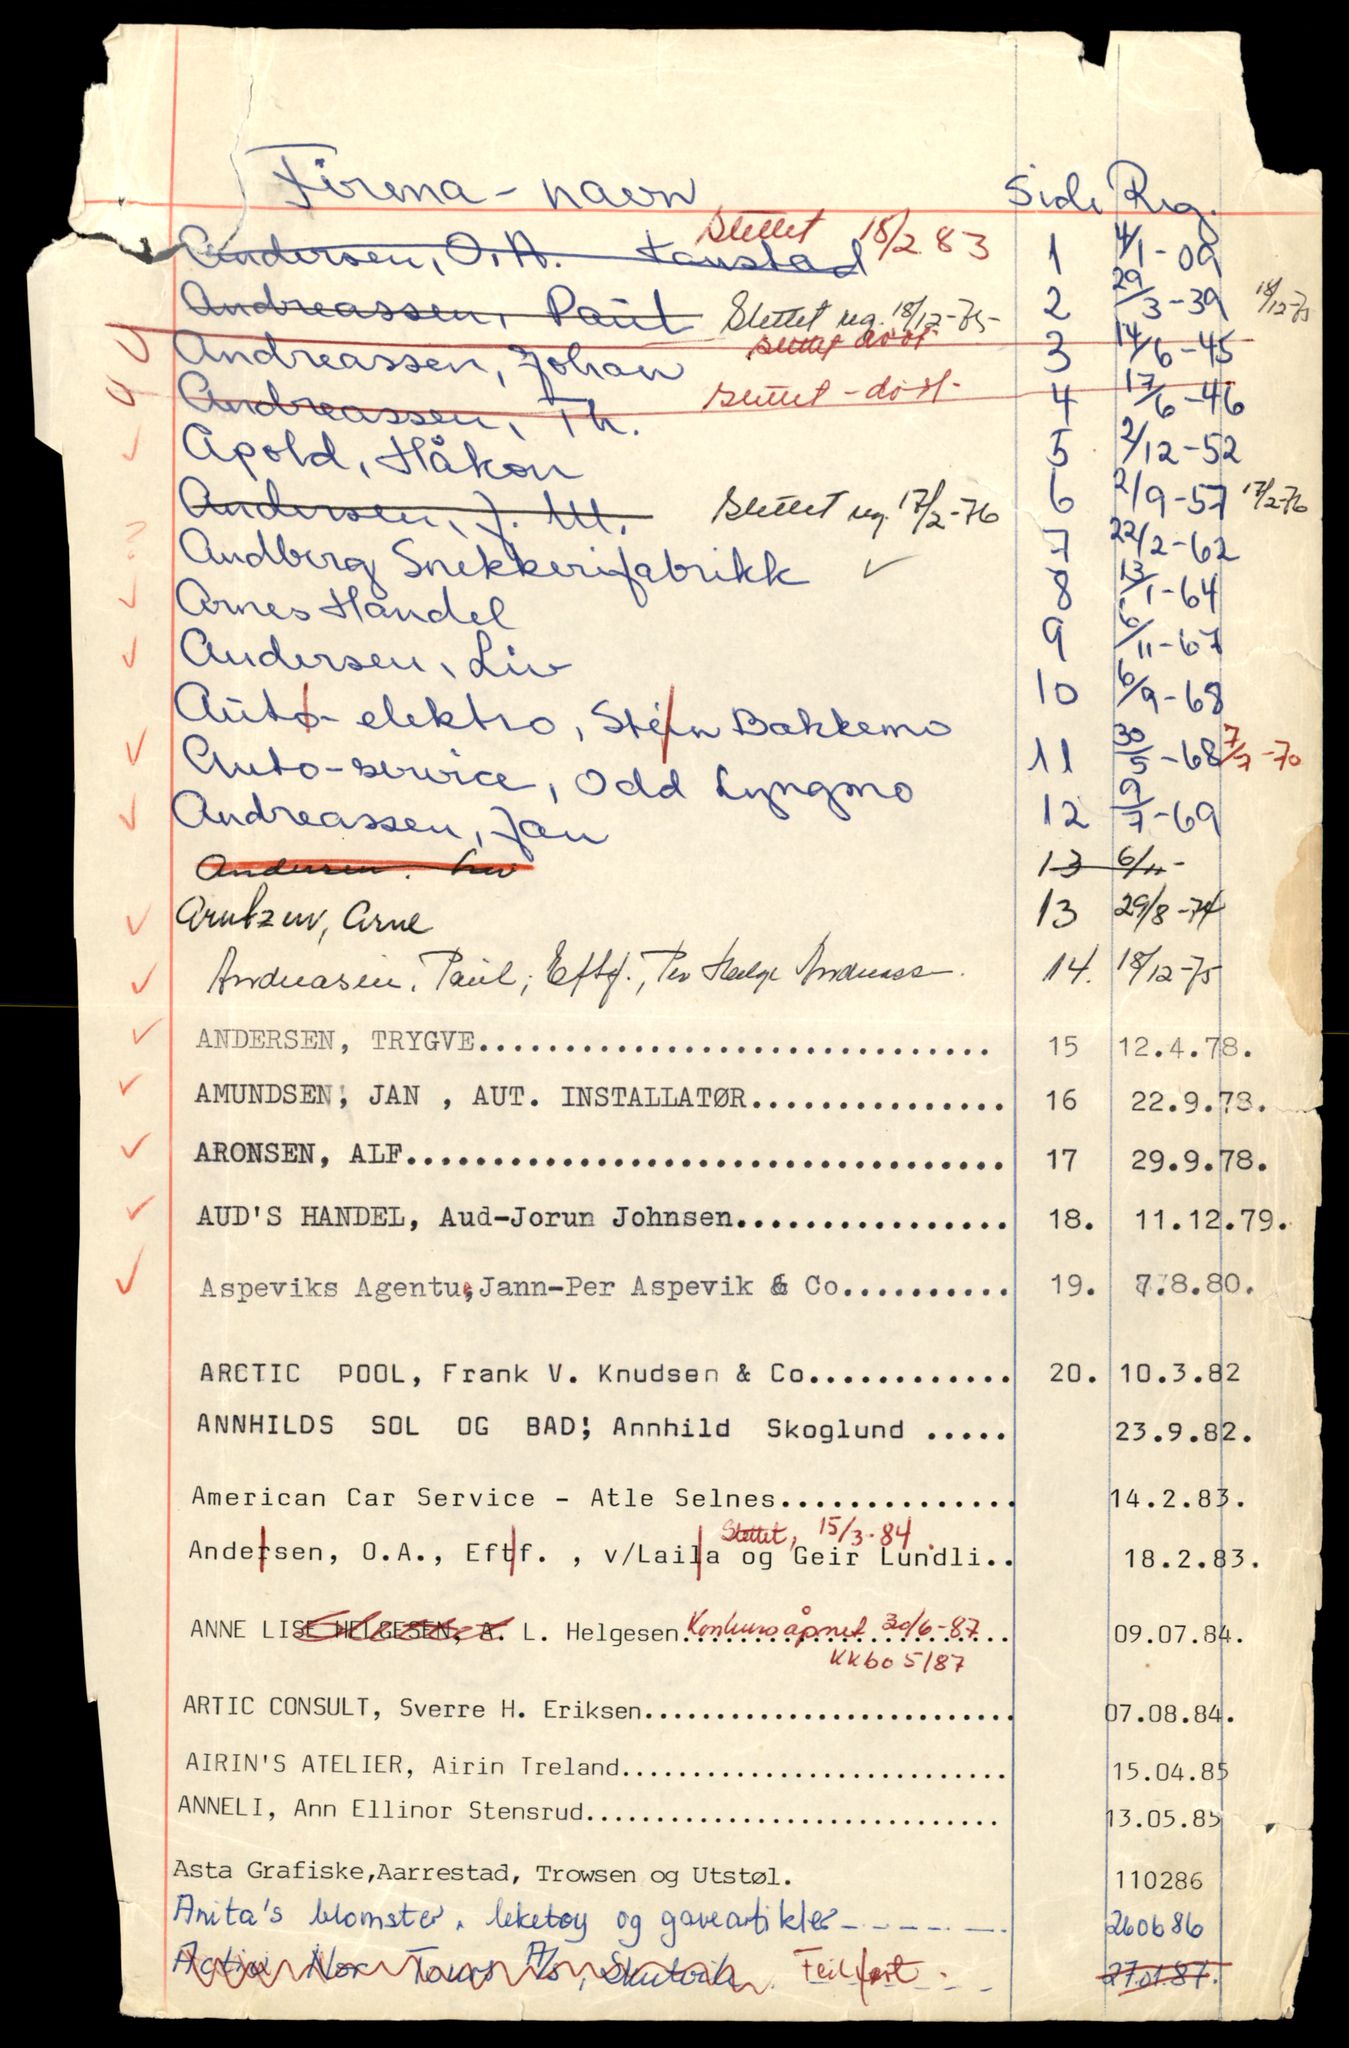 Firma-navn Side Reg.
Andersen, O.A. Tanstad slettet 18/2 83 1 4/1-09
Andreassen, Paul Slettet reg. 18/12-75- 2 29/3-39 18/12-75
Andreassen, Johan slettet død 3 14/6-45
Andreassen, Th. slettet - død - 4 17/6-46
Apold, Håkon 5 2/12-52
Andersen, J. M. Slettet reg. 17/2-76 6 2/9-57 17/2-76
Andberg Snekkerifabrikk ✓ 7 22/2-62
Arnes Handel 8 13/1-64
Andersen, Liv 9 6/11-67
Auto-elektro, Stein Bakkemo 10 6/9-68
Auto-service, Odd Lyngmo 11 30/5-68 7/7-70
Andreassen, Jan 12 9/7-69
Andersen. Liv 13 6/11-
Arntzen, Arne 13 29/8-74
Andreasen, Paul, Eftf., Per Helge Andreass 14. 18/12-75
ANDERSEN, TRYGVE.............................. 15 12.4.78.
AMUNDSEN, JAN , AUT. INSTALLATØR............... 16 22.9.78.
ARONSEN, ALF................................... 17 29.9.78.
AUD'S HANDEL, Aud-Jorun Johnsen................ 18. 11.12.79.
Aspeviks Agentu, Jann-Per Aspevik & Co.......... 19. 7.8.80.
ARCTIC POOL, Frank V. Knudsen & Co............ 20. 10.3.82
ANNHILDS SOL OG BAD; Annhild Skoglund ..... 23.9.82.
American Car Service - Atle Selnes.............. 14.2.83.
Slettet, 15/3-84.
Andersen, O.A., Eftf. , v/Laila og Geir Lundli.. 18.2.83.
ANNE LISE HELGESEN, A. L. Helgesen Konkurs åpnet 30/6-87 09.07.84.
KKbo 5/87
ARTIC CONSULT, Sverre H. Eriksen.......................... 07.08.84.
AIRIN'S ATELIER, Airin Treland........................... 15.04.85
ANNELI, Ann Ellinor Stensrud............................. 13.05.85
Asta Grafiske,Aarrestad, Trowsen og Utstøl. 110286
Anita's blomster, leketøy og gaveartikler 260686
Active Nor Tours A/s, Skutvik Feilført. 27.01.87.